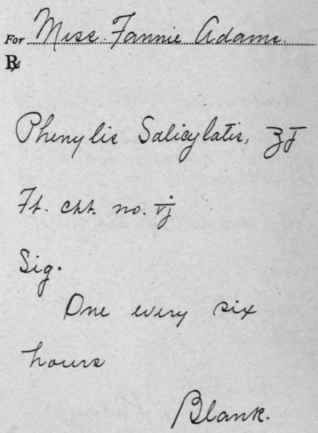 For Miss. Fannie Adams.
℞
Phenylis Salicylatis, ʒ j
Ft. cht. no. vj
Sig.
One every six
hours
Blank.